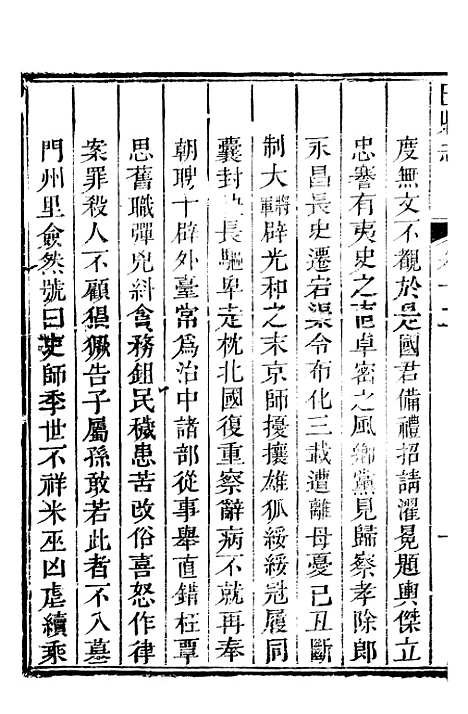 度無文不觀於是國君備禮招請濯冕題輿傑立
忠謇有夷史之直卓密之風鄉黨見歸察孝除郎
永昌長史遷宕渠令布化三載遭離母憂已丑斷
制大將軍辟光和之末京師擾攘雄狐綏綏冠履同
囊封長驅畢走枕北國復重察辭病不就再奉
朝聘十辟外臺常為治中諸部從事舉直錯枉覃
思舊職彈兇糾貪務鉏民穢患苦政俗喜怒作律
案罪殺人不顧猖獗告子屬孫敢若此者不入墓
門州里僉然號曰吏師季世不祥米巫凶虐續乘